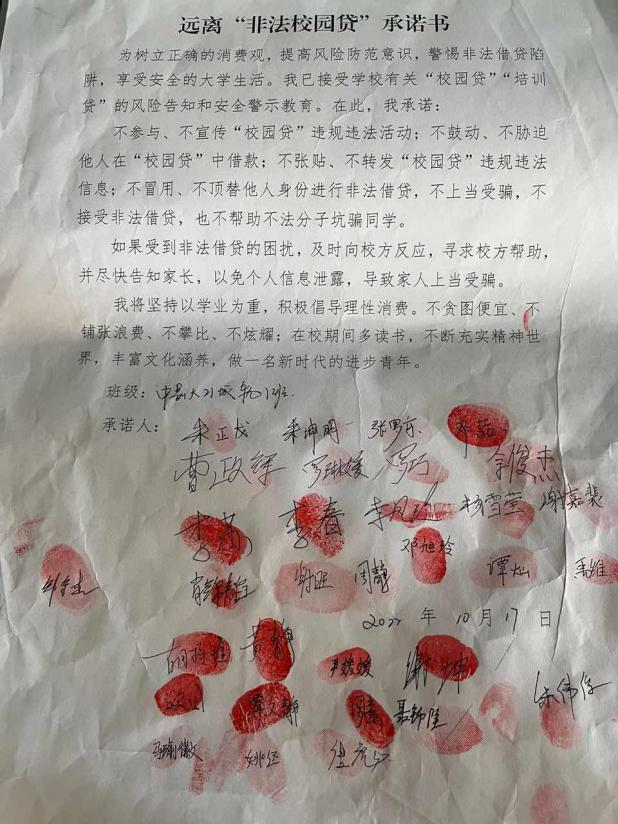 远离“非法校园贷”承诺书
为树立正确的消费观，提高风险防范意识，警惕非法借贷陷
阱，享受安全的大学生活。我已接受学校有关“校园贷”“培训
贷”的风险告知和安全警示教育。在此，我承诺：
不参与、不宣传“校园贷”违规违法活动；不鼓动、不胁迫
他人在“校园贷”中借款；不张贴、不转发“校园贷”违规违法
信息；不冒用、不顶替他人身份进行非法借贷，不上当受骗，不
接受非法借贷，也不帮助不法分子坑骗同学。
如果受到非法借贷的困扰，及时向校方反应，寻求校方帮助，
并尽快告知家长，以免个人信息泄露，导致家人上当受骗。
我将坚持以学业为重，积极倡导理性消费。不贪图便宜、不
铺张浪费、不攀比、不炫耀；在校期间多读书，不断充实精神世
界，丰富文化涵养，做一名新时代的进步青年。
班级：
承诺人：朱正戊 朱坤明 邓喆
曹政辉 余俊杰
李春 杨雪莹 谢嘉裴
邓旭玲
周静 谭灿 马维
2022 年 10 月 17 日
黄静
尹媛媛 谢坤
覃文静 聂锦陆 朱伟俊
姚廷